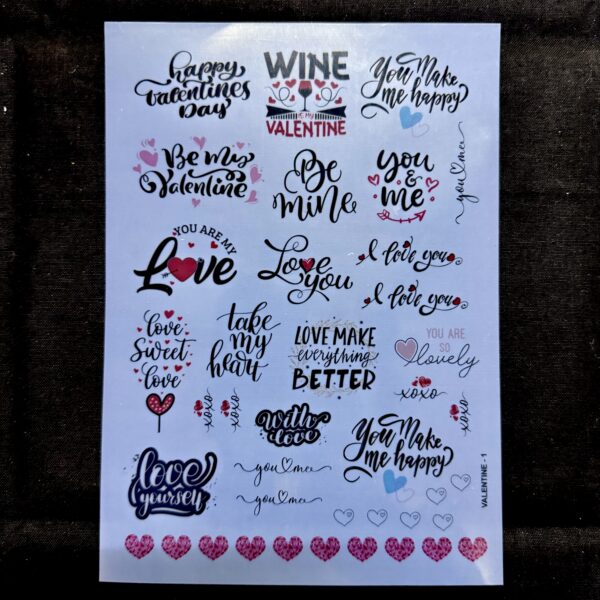 happy
valentines
Day
WINE
is my
VALENTINE
You Make
me happy
Be my
Valentine
Be
mine
you
&
me
you me
YOU ARE MY
Love
Love
you
I love you
I love you
love
Sweet
love
take
my
heart
LOVE MAKE
everything
BETTER
YOU ARE
SO
lovely
xoxo
xoxo
xoxo
xoxo
with
love
You Make
me happy
love
yourself
you me
you me
VALENTINE - 1